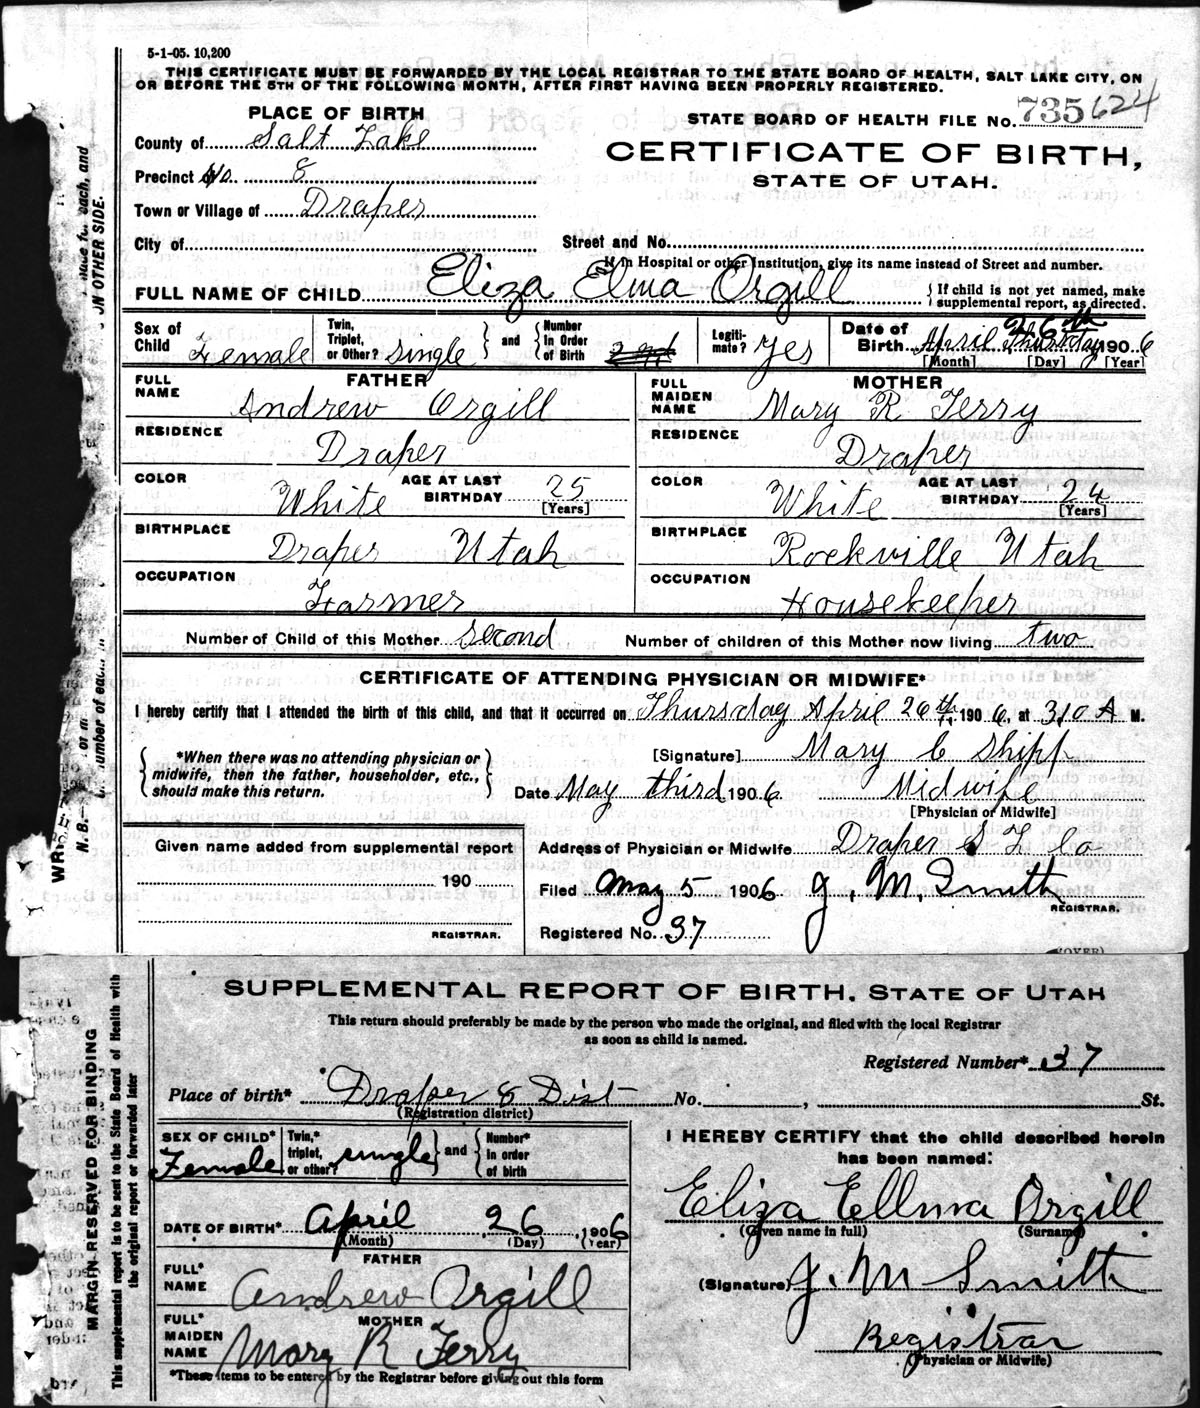 5-1-05. 10,200
THIS CERTIFICATE MUST BE FORWARDED BY THE LOCAL REGISTRAR TO THE STATE BOARD OF HEALTH, SALT LAKE CITY, ON
OR BEFORE THE 5TH OF THE FOLLOWING MONTH, AFTER FIRST HAVING BEEN PROPERLY REGISTERED.
PLACE OF BIRTH
STATE BOARD OF HEALTH FILE No. 735 624
County of Salt Lake
CERTIFICATE OF BIRTH,
STATE OF UTAH.
Precinct No. 8
Town or Village of Draper
City of
Street and No.
If in Hospital or other Institution, give its name instead of Street and number.
FULL NAME OF CHILD Eliza Elma Orgill
If child is not yet named, make
supplemental report, as directed.
Sex of Child Female
Twin, Triplet, or Other? single and Number in Order of Birth
Legitimate? yes
Date of Birth April 26th Thursday 1906
[Month] [Day] [Year]
FATHER
FULL NAME Andrew Orgill
RESIDENCE Draper
COLOR White AGE AT LAST BIRTHDAY 25
[Years]
BIRTHPLACE Draper Utah
OCCUPATION Farmer
MOTHER
FULL MAIDEN NAME Mary R Terry
RESIDENCE Draper
COLOR White AGE AT LAST BIRTHDAY 24
[Years]
BIRTHPLACE Rockville Utah
OCCUPATION Housekeeper
Number of Child of this Mother second Number of children of this Mother now living two
CERTIFICATE OF ATTENDING PHYSICIAN OR MIDWIFE*
I hereby certify that I attended the birth of this child, and that it occurred on Thursday April 26th, 1906, at 310 A M.
*When there was no attending physician or
midwife, then the father, householder, etc.,
should make this return.
[Signature] Mary C Shipp
Date May third 1906 Midwife
[Physician or Midwife]
Given name added from supplemental report
190
REGISTRAR.
Address of Physician or Midwife Draper S L Co
Filed May 5 1906 J. M. Smith
REGISTRAR.
Registered No. 37
(OVER)
SUPPLEMENTAL REPORT OF BIRTH. STATE OF UTAH
This return should preferably be made by the person who made the original, and filed with the local Registrar
as soon as child is named.
Registered Number* 37
Place of birth* Draper 8 Dist No. , St.
(Registration district)
SEX OF CHILD* Female
Twin,* triplet, or other? single and Number* in order of birth
DATE OF BIRTH* April 26, 1906
(Month) (Day) (Year)
FATHER
FULL* NAME Andrew Orgill
MOTHER
FULL* MAIDEN NAME Mary R Terry
*These items to be entered by the Registrar before giving out this form
I HEREBY CERTIFY that the child described herein
has been named:
Eliza Ellma Orgill
(Given name in full) (Surname)
(Signature) J. M Smith
Registrar
(Physician or Midwife)
MARGIN RESERVED FOR BINDING
This supplemental report is to be sent to the State Board of Health with
the original report or forwarded later